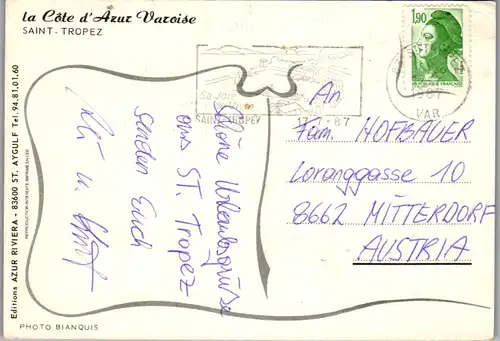 la Côte d'Azur Varoise
SAINT - TROPEZ
1,90
SAINT-TROPEZ
17-7-87
VAR
An
Fam. HOFBAUER
Loranggasse 10
8662 MITTERDORF
AUSTRIA
Schöne Urlaubsgrüsse
aus ST. Tropez
senden Euch
Editions AZUR RIVIERA - 83600 ST. AYGULF Tel. 94.81.01.60
PHOTO BIANQUIS